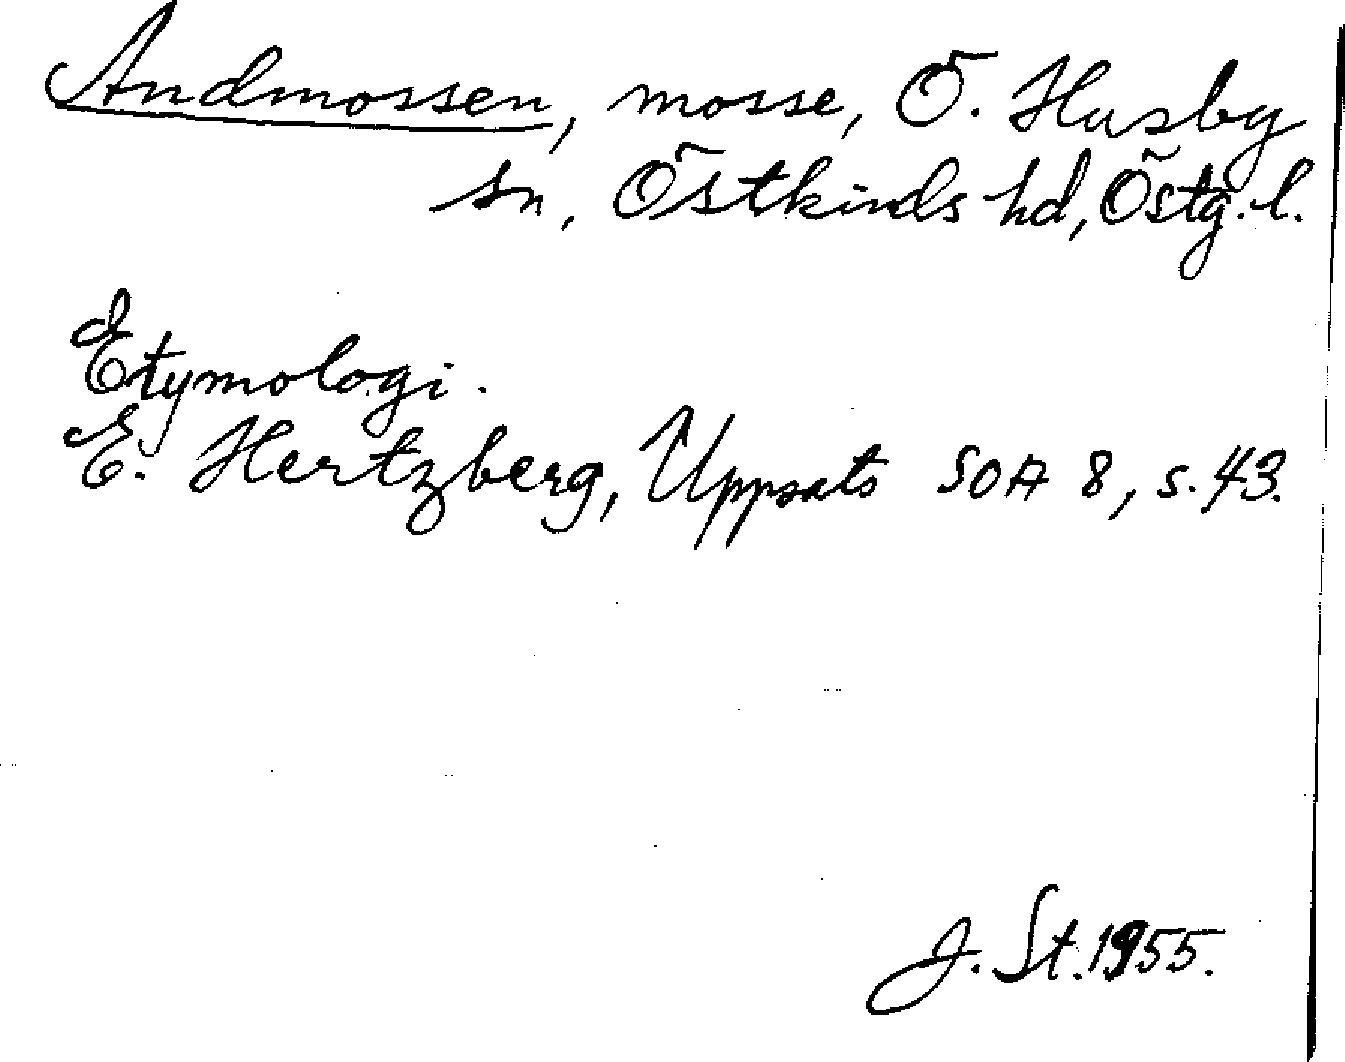 Andmossen, mosse, Ö. Husby
sn, Östkinds hd, Östg. l.
Etymologi.
E. Hertzberg, Uppsats SOA 8, s. 43.
J. St. 1955.